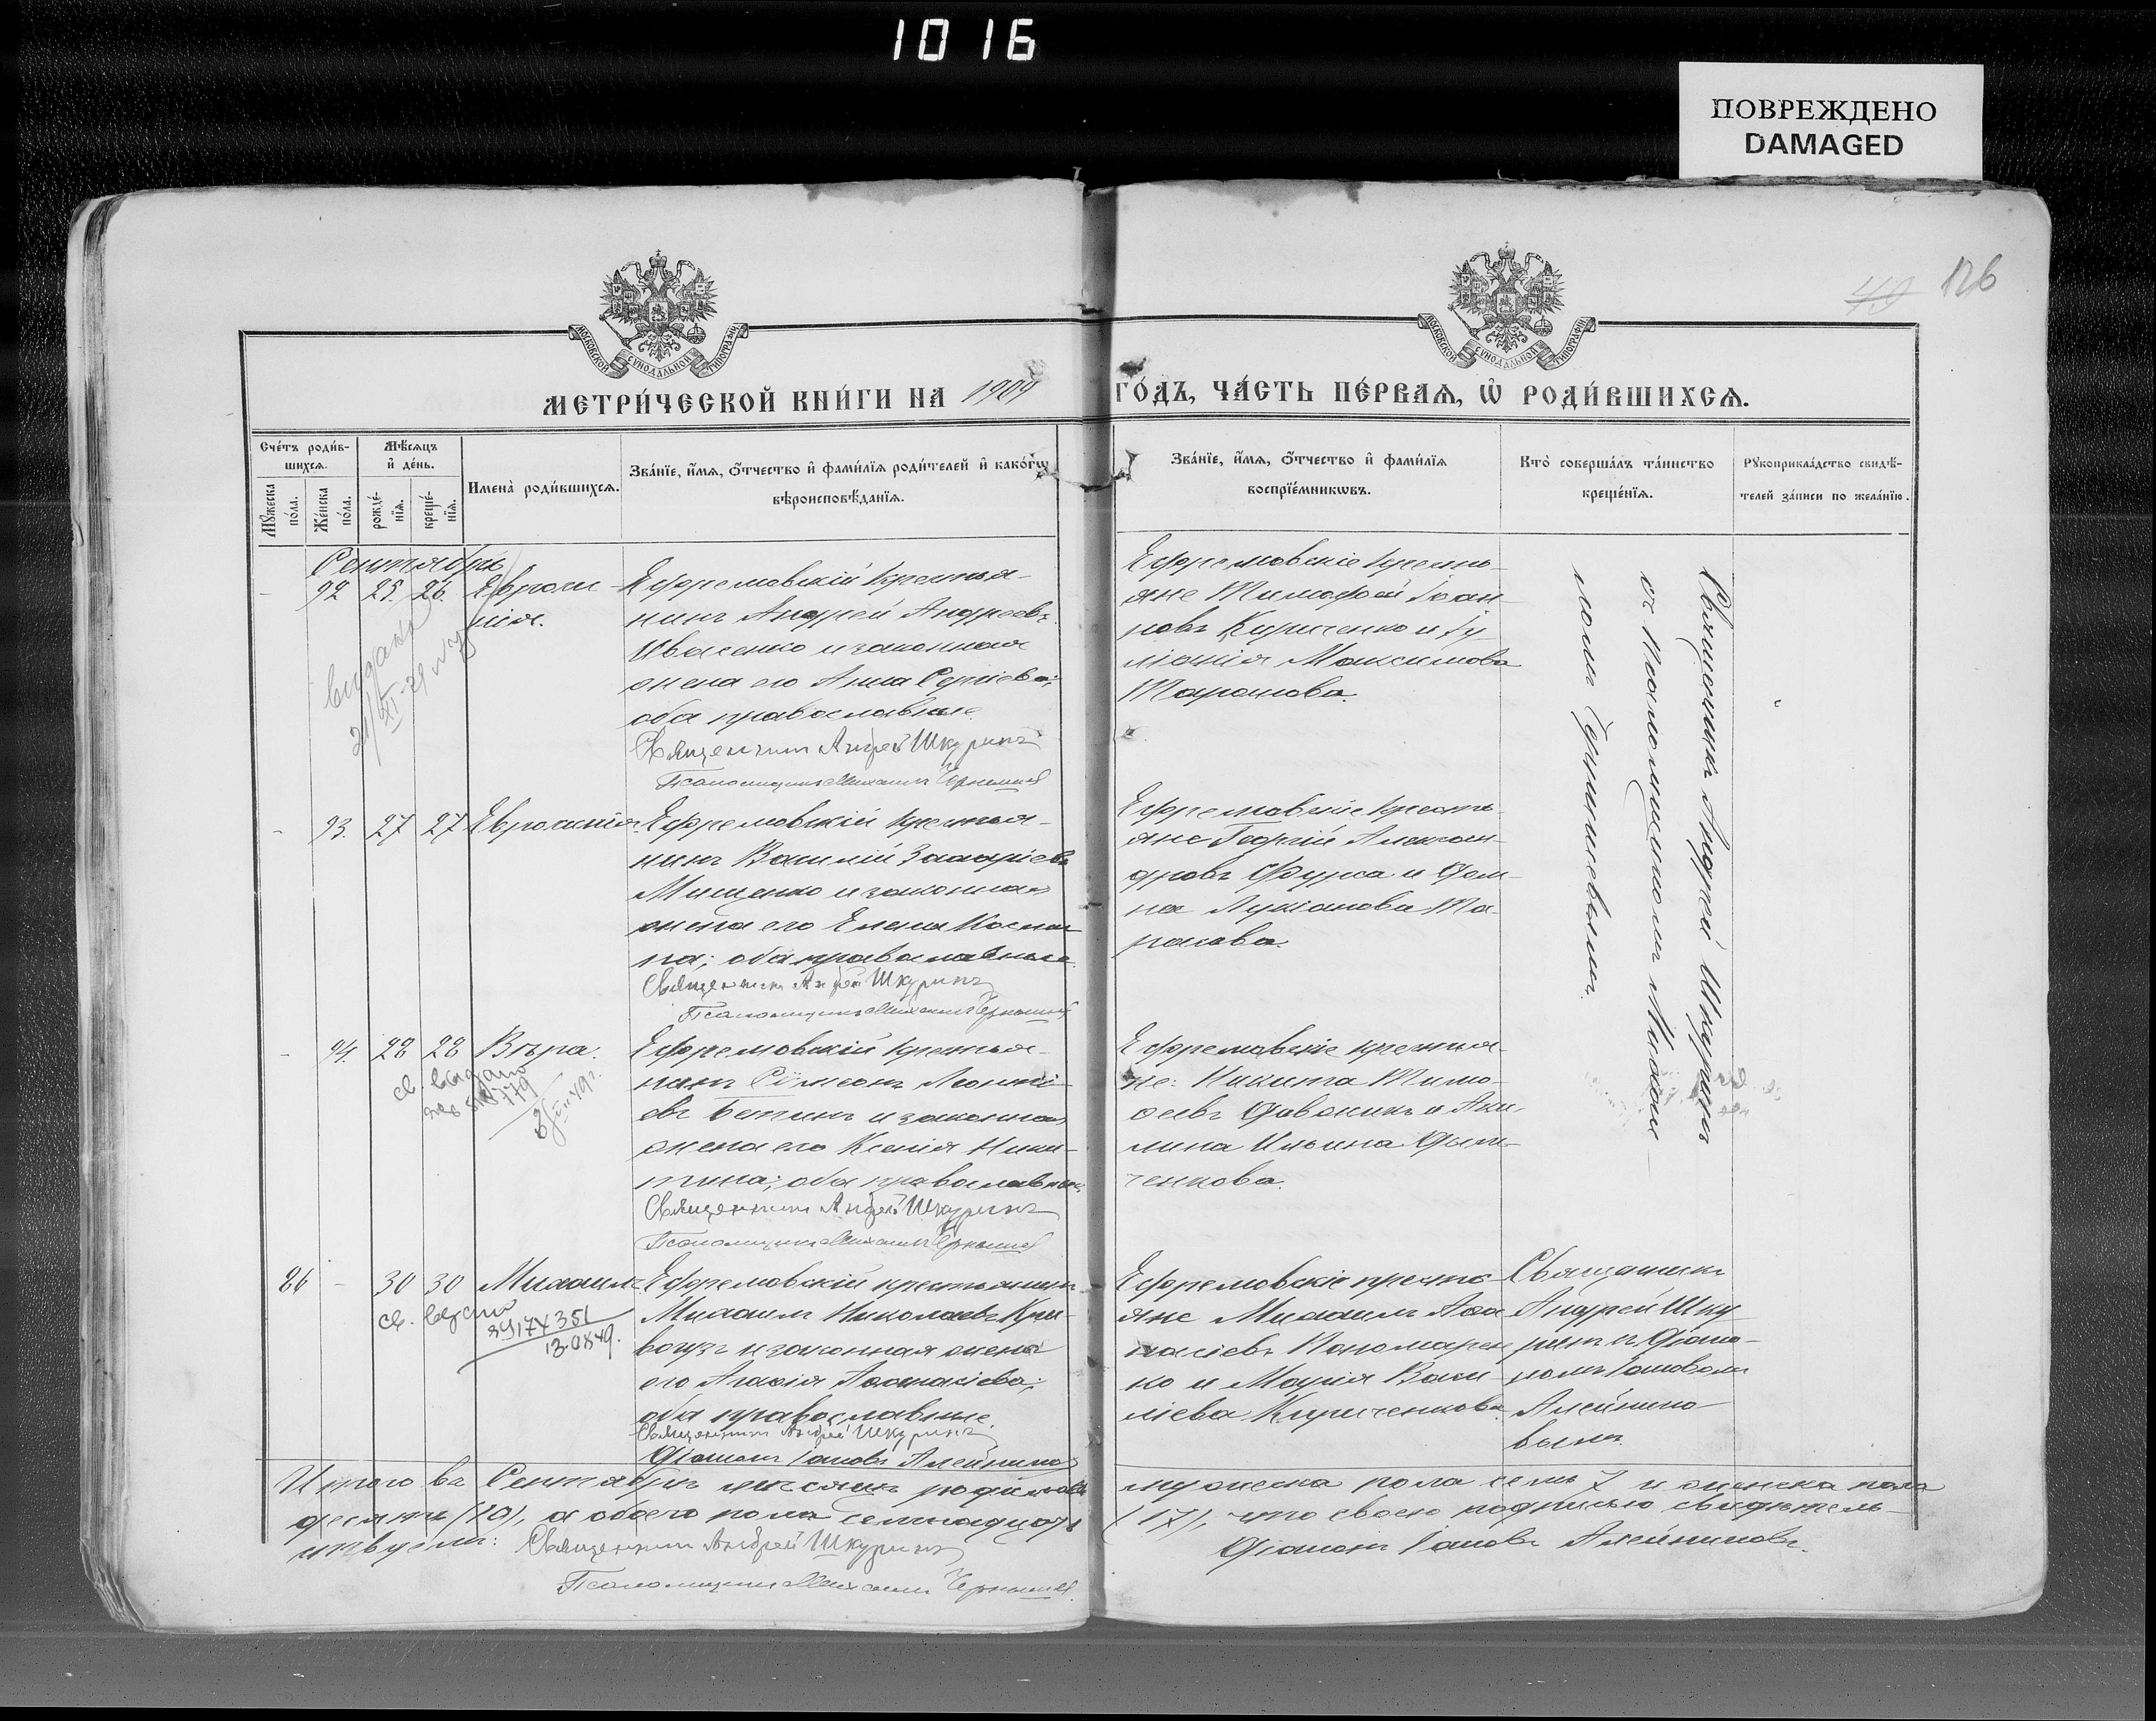 1016
ПОВРЕЖДЕНО
DAMAGED
126
40
МОСКОВСКОЙ СѴНОДАЛЬНОЙ ТИПОГРАФІИ
МОСКОВСКОЙ СѴНОДАЛЬНОЙ ТИПОГРАФІИ
МЕТРИ́ЧЕСКОЙ КНИ́ГИ НА 1904 ГО́ДЪ, ЧА́СТЬ ПЕ́РВАѦ, Ѽ РОДИ́ВШИХСѦ.
Сче́тъ роди́в-
шихсѧ.
Мꙋ́жеска по́ла.
Же́нска по́ла.
Мѣ́сѧцъ
и҆ де́нь.
рожде́-
нїѧ.
креще́-
нїѧ.
И҆мена̀ роди́вшихсѧ.
Зва́нїе, и҆́мѧ, ѻ҆́тчество и҆ фами́лїѧ роди́телей и҆ како́гѡ
вѣроисповѣ́данїѧ.
Зва́нїе, и҆́мѧ, ѻ҆́тчество и҆ фами́лїѧ
воспрїе́мникѡвъ.
Кто̀ соверша́лъ та́инство
креще́нїѧ.
Рꙋкоприкла́дство свидѣ́-
телей за́писи по жела́нїю.
Сентябрь
- 92 25. 26. Евроси-
нія.
Ефремовскій крестья-
нинъ Андрей Андреевъ
Ивасенко и законная
жена его Анна Сергіева;
оба православные.
Священникъ Андрей Шкуринъ
Псаломщикъ Михаилъ Чернышев
Ефремовскіе кресть-
яне Тимофей Іоан-
новъ Кириченко и Іу
ліанія Максимова
Таранова.
выдана
21/XI-29
Священникъ Андрей Шкуринъ
съ псаломщикомъ Михаи-
ломъ Чернышевымъ.
- 93. 27 27 Евросинія.
Ефремовскій крестья-
нинъ Василій Захаріевъ
Мищенко и законная
жена его Елена Косми-
на; оба православные.
Священникъ Андрей Шкуринъ
Псаломщикъ Михаилъ Чернышев
Ефремовскіе кресть-
яне Георгій Алексан-
дровъ Фурса и Дом-
на Лукіанова Та-
ранова.
- 94. 28 28 Вѣра.
св. выдано
779
Ефремовскій крестья-
нинъ Сѵмеонъ Леонті-
евъ Бетинъ и законная
жена его Ксенія Ники-
тина; оба православные.
Священникъ Андрей Шкуринъ
Псаломщикъ Михаилъ Чернышев
Ефремовскіе крестья-
не: Никита Тимо-
феевъ Довженкъ и Аки-
лина Ильина Дья-
ченкова.
86 - 30 30 Михаилъ
св. выдано
174351
13.08.49.
Ефремовскій крестьянинъ
Михаилъ Николаевъ Кри-
вогузъ и законная жена
его Агафія Афанасіева;
оба православные.
Священникъ Андрей Шкуринъ
Діаконъ Іаковъ Алейниковъ
Ефремовскіе кресть-
яне Михаилъ Афа
насіевъ Пономарен
ко и Марія Васи-
ліева Кириченкова.
Священникъ
Андрей Шку
ринъ съ Діако-
номъ Іаковомъ
Алейнико-
вымъ.
Итого въ Сентябрѣ мѣсяцѣ родилось мужеска пола семь 7 и женска пола
десять (10), а обоего пола семнадцать (17), что своею подписью свидѣтель-
ствуемъ: Священникъ Андрей Шкуринъ
Діаконъ Іаковъ Алейниковъ.
Псаломщикъ Михаилъ Чернышев